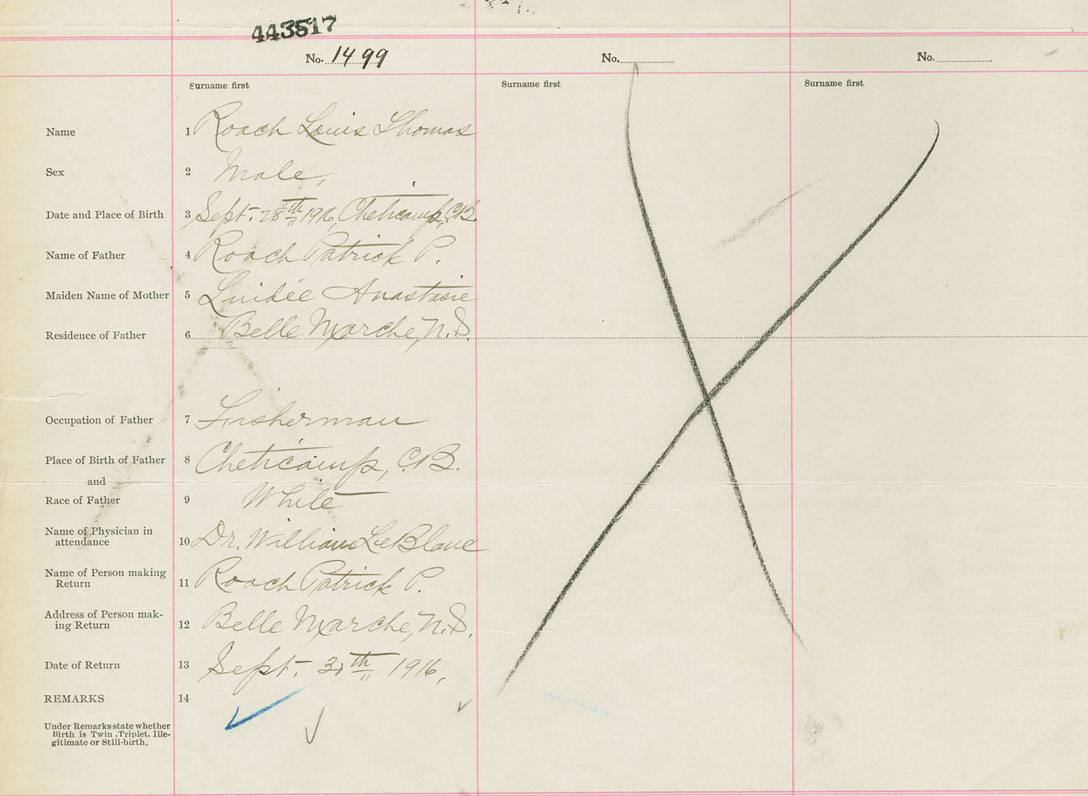 443517
No. 1499 No. No.
Surname first Surname first Surname first
Name 1 Roach Louis Thomas
Sex 2 Male,
Date and Place of Birth 3 Sept. 28th 1916, Cheticamp, C.B.
Name of Father 4 Roach Patrick P.
Maiden Name of Mother 5 Luidée Anastasie
Residence of Father 6 Belle Marche, N.S.
Occupation of Father 7 Fisherman
Place of Birth of Father 8 Cheticamp, C.B.
and
Race of Father 9 White
Name of Physician in
attendance 10 Dr. William LeBlanc
Name of Person making
Return 11 Roach Patrick P.
Address of Person mak-
ing Return 12 Belle Marche, N.S.
Date of Return 13 Sept. 30th 1916,
REMARKS 14
Under Remarks state whether
Birth is Twin, Triplet, Ille-
gitimate or Still-birth.